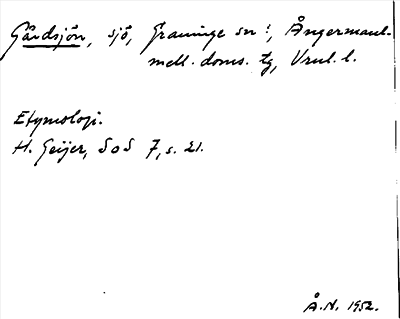 Gårdsjön, sjö, Graninge sn :, Ångermanl.
mell. doms. tg, Vnl. l.
Etymologi.
H. Geijer, SoS 7, s. 21.
Å.N. 1952.